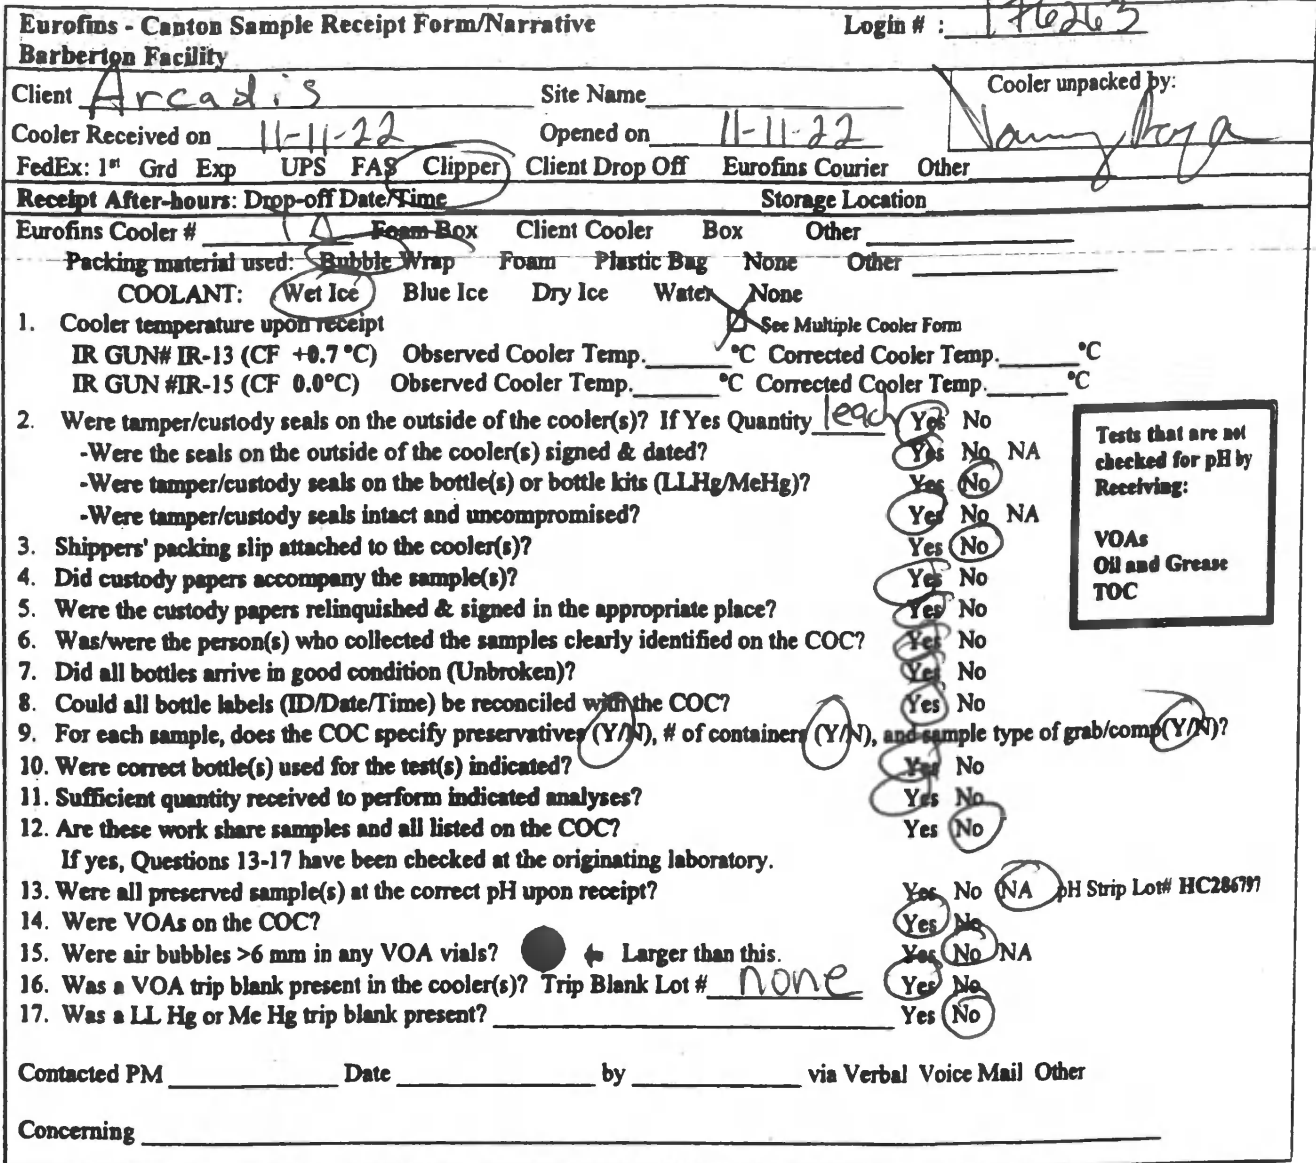 Eurofins - Canton Sample Receipt Form/Narrative Login # : 176263
Barberton Facility
Client Arcadis Site Name Cooler unpacked by:
Cooler Received on 11-11-22 Opened on 11-11-22
FedEx: 1st Grd Exp UPS FAS Clipper Client Drop Off Eurofins Courier Other
Receipt After-hours: Drop-off Date/Time Storage Location
Eurofins Cooler # Foam Box Client Cooler Box Other
Packing material used: Bubble Wrap Foam Plastic Bag None Other
COOLANT: Wet Ice Blue Ice Dry Ice Water None
1. Cooler temperature upon receipt See Multiple Cooler Form
IR GUN# IR-13 (CF +0.7 °C) Observed Cooler Temp. °C Corrected Cooler Temp. °C
IR GUN #IR-15 (CF 0.0°C) Observed Cooler Temp. °C Corrected Cooler Temp. °C
2. Were tamper/custody seals on the outside of the cooler(s)? If Yes Quantity 1each Yes No
-Were the seals on the outside of the cooler(s) signed & dated? Yes No NA
-Were tamper/custody seals on the bottle(s) or bottle kits (LLHg/MeHg)? Yes No
-Were tamper/custody seals intact and uncompromised? Yes No NA
3. Shippers' packing slip attached to the cooler(s)? Yes No
4. Did custody papers accompany the sample(s)? Yes No
5. Were the custody papers relinquished & signed in the appropriate place? Yes No
6. Was/were the person(s) who collected the samples clearly identified on the COC? Yes No
7. Did all bottles arrive in good condition (Unbroken)? Yes No
8. Could all bottle labels (ID/Date/Time) be reconciled with the COC? Yes No
9. For each sample, does the COC specify preservatives (Y/N), # of containers (Y/N), and sample type of grab/comp(Y/N)?
10. Were correct bottle(s) used for the test(s) indicated? Yes No
11. Sufficient quantity received to perform indicated analyses? Yes No
12. Are these work share samples and all listed on the COC? Yes No
If yes, Questions 13-17 have been checked at the originating laboratory.
13. Were all preserved sample(s) at the correct pH upon receipt? Yes No NA pH Strip Lot# HC286797
14. Were VOAs on the COC? Yes No
15. Were air bubbles >6 mm in any VOA vials? Larger than this. Yes No NA
16. Was a VOA trip blank present in the cooler(s)? Trip Blank Lot # none Yes No
17. Was a LL Hg or Me Hg trip blank present? Yes No
Tests that are not
checked for pH by
Receiving:
VOAs
Oil and Grease
TOC
Contacted PM Date by via Verbal Voice Mail Other
Concerning